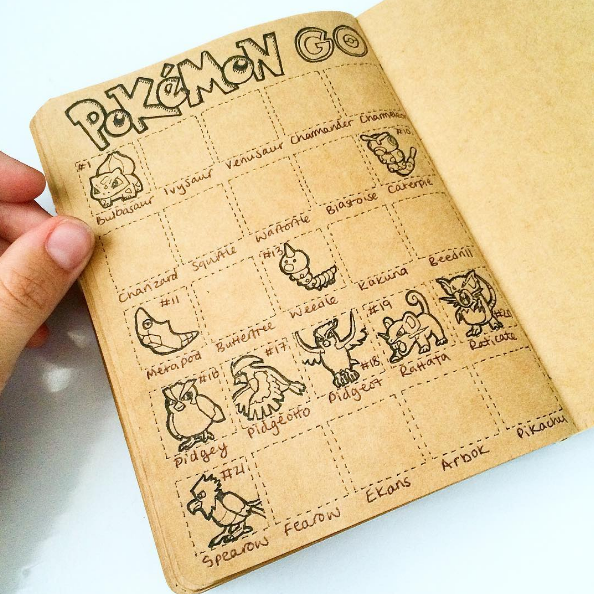 POKéMON GO
#1
Bulbasaur Ivysaur Venusaur Charmander Charmeleon
#10
Charizard Squirtle Wartortle Blastoise Caterpie
#11 #13
Metapod Butterfree Weedle Kakuna Beedrill
#16 #17 #18 #19 #20
Pidgey Pidgeotto Pidgeot Rattata Raticate
#21
Spearow Fearow Ekans Arbok Pikachu